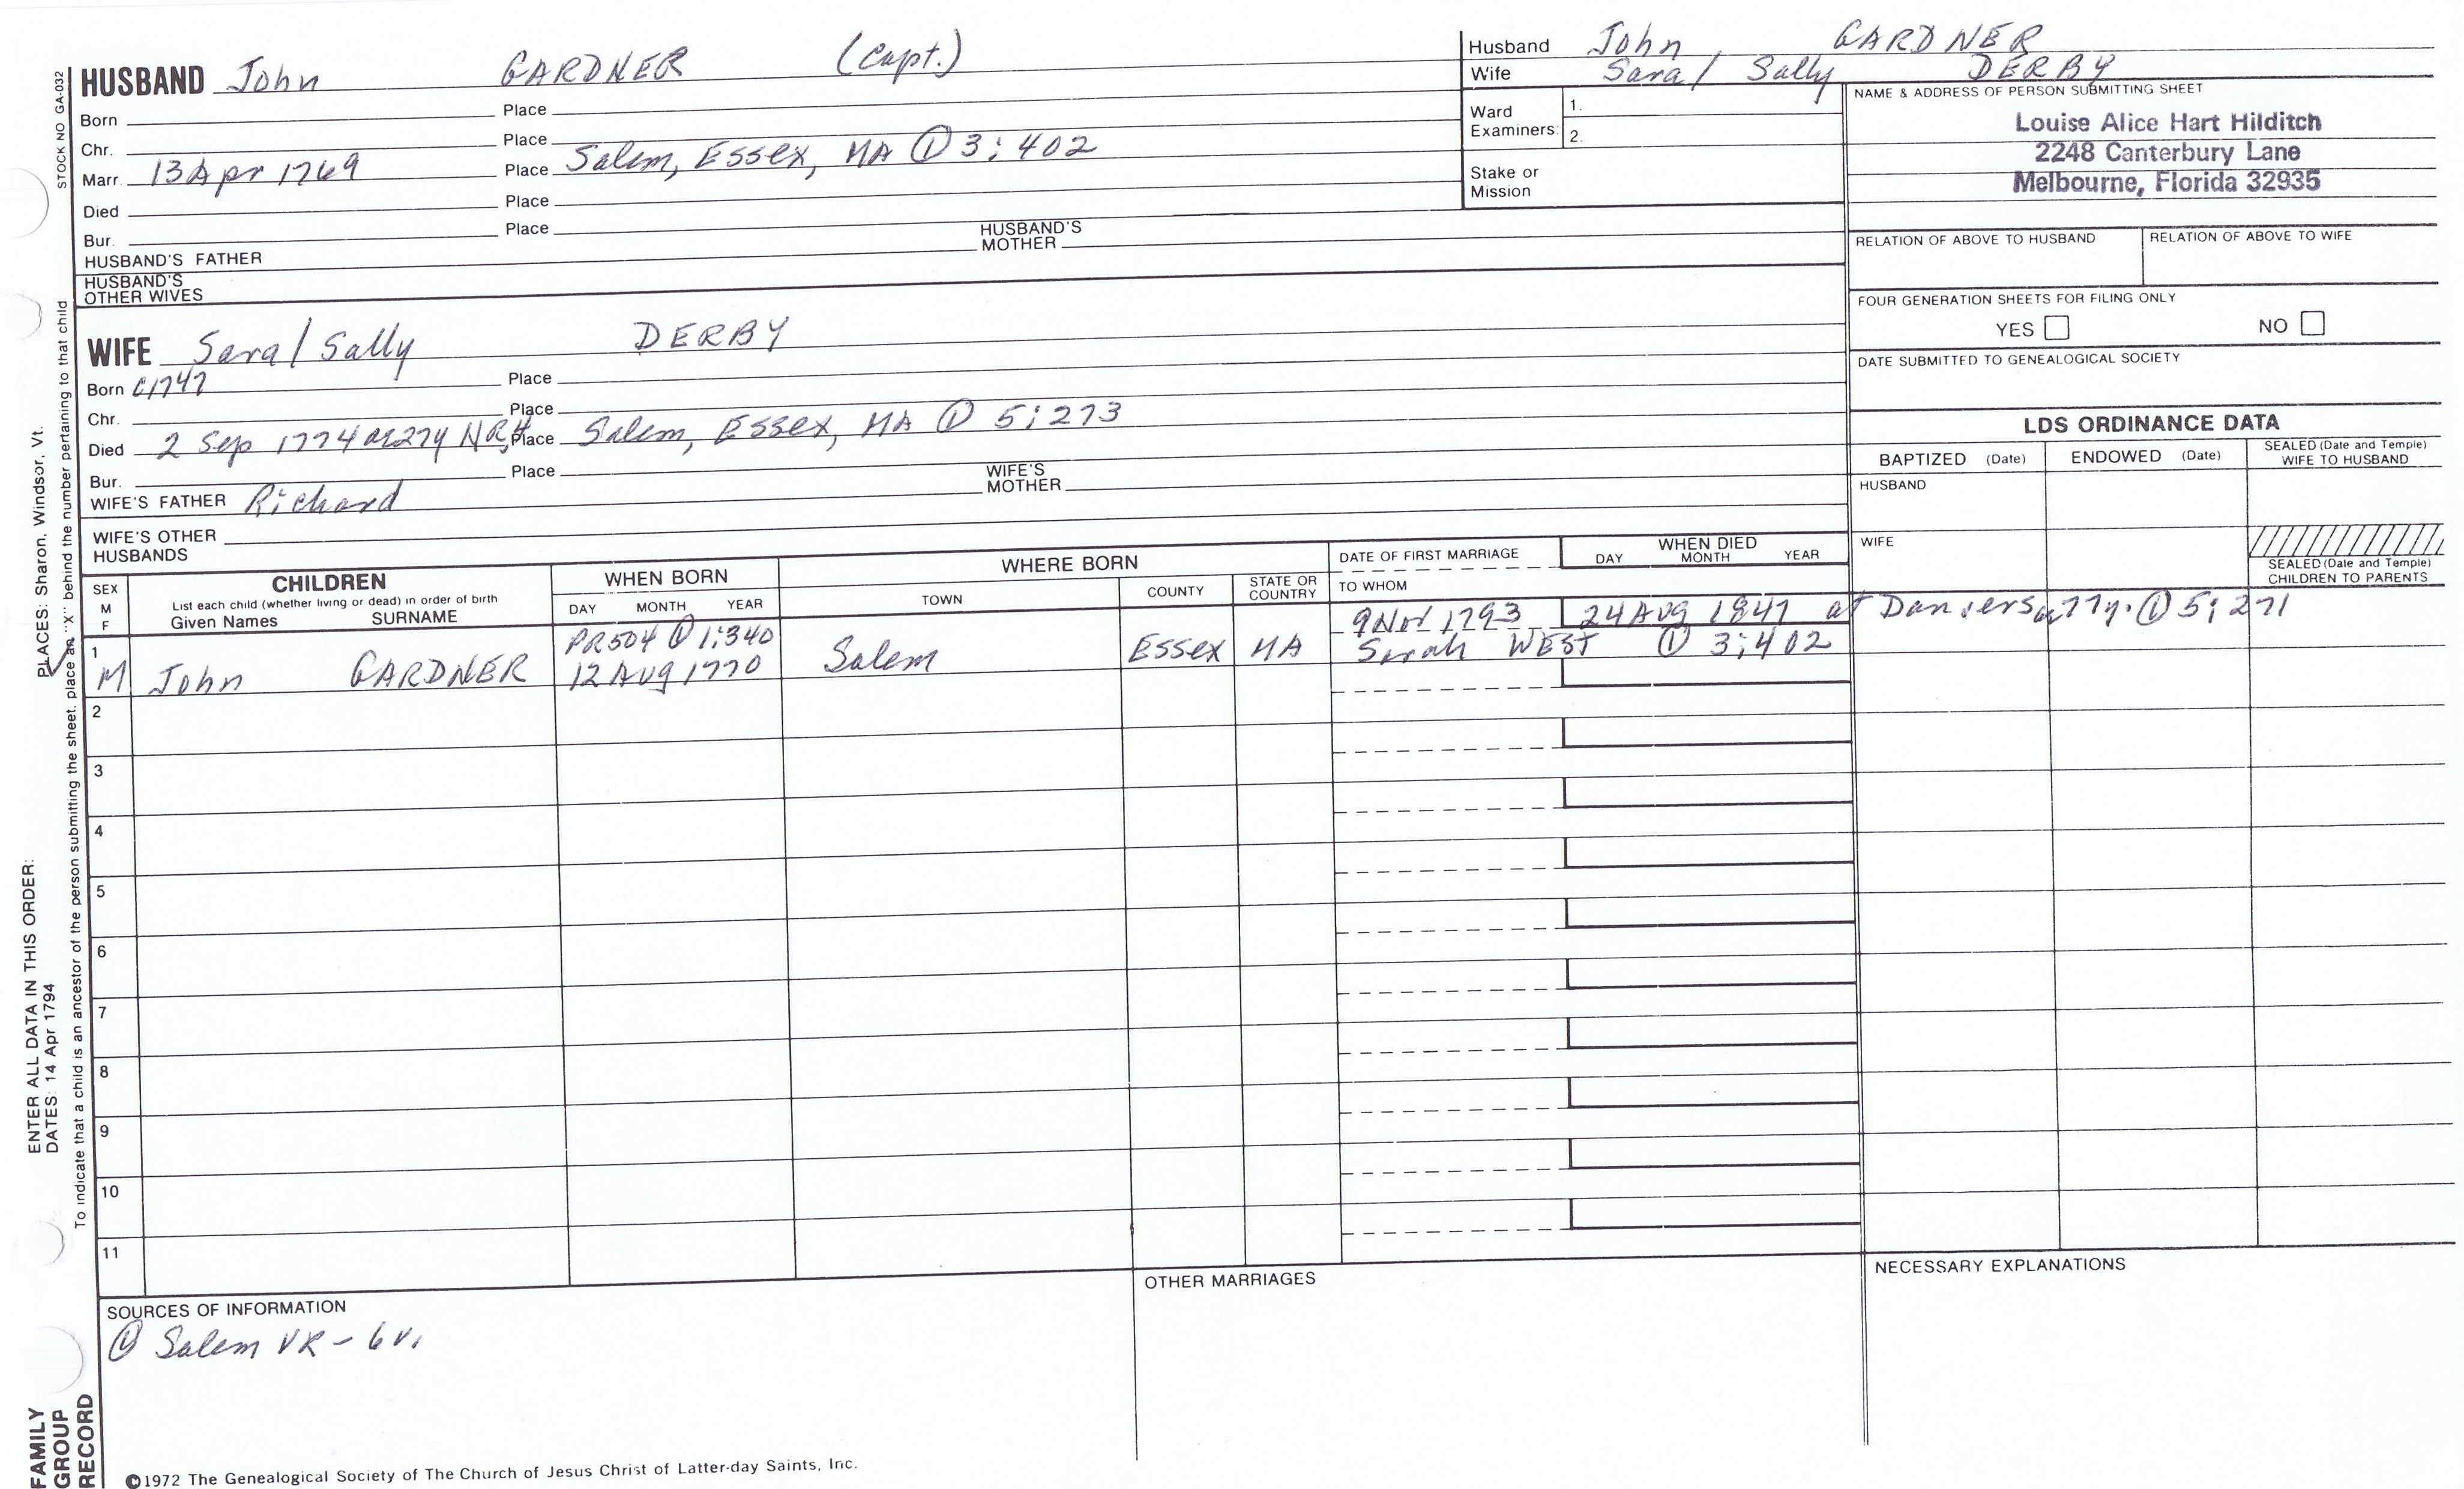 STOCK NO GA-032
HUSBAND John GARDNER (Capt.)
Born Place
Chr. Place
Marr. 13 Apr 1769 Place Salem, Essex, MA ① 3:402
Died Place
Bur. Place
HUSBAND'S FATHER HUSBAND'S MOTHER
HUSBAND'S OTHER WIVES
Husband John GARDNER
Wife Sara/Sally DERBY
Ward Examiners: 1.
2.
Stake or Mission
NAME & ADDRESS OF PERSON SUBMITTING SHEET
Louise Alice Hart Hilditch
2248 Canterbury Lane
Melbourne, Florida 32935
RELATION OF ABOVE TO HUSBAND RELATION OF ABOVE TO WIFE
FOUR GENERATION SHEETS FOR FILING ONLY
YES NO
DATE SUBMITTED TO GENEALOGICAL SOCIETY
WIFE Sara/Sally DERBY
Born c1747 Place
Chr. Place
Died 2 Sep 1774 ae27y Place Salem, Essex, MA ① 5:273
Bur. Place
WIFE'S FATHER Richard WIFE'S MOTHER
WIFE'S OTHER HUSBANDS
LDS ORDINANCE DATA
BAPTIZED (Date) ENDOWED (Date) SEALED (Date and Temple) WIFE TO HUSBAND
HUSBAND
WIFE
SEALED (Date and Temple) CHILDREN TO PARENTS
SEX M F
CHILDREN
List each child (whether living or dead) in order of birth
Given Names SURNAME
WHEN BORN
DAY MONTH YEAR
WHERE BORN
TOWN COUNTY STATE OR COUNTRY
DATE OF FIRST MARRIAGE
TO WHOM
WHEN DIED
DAY MONTH YEAR
1 PR504 ① 1:340 9 Nov 1793 24 Aug 1847 at Danvers ae77y. ① 5:271
M John GARDNER 12 Aug 1770 Salem Essex MA Sarah WEST ① 3:402
2
3
4
5
6
7
8
9
10
11
SOURCES OF INFORMATION
① Salem VR - 6v.
OTHER MARRIAGES
NECESSARY EXPLANATIONS
©1972 The Genealogical Society of The Church of Jesus Christ of Latter-day Saints, Inc.
FAMILY GROUP RECORD
ENTER ALL DATA IN THIS ORDER:
DATES: 14 Apr 1794
PLACES: Sharon, Windsor, Vt.
To indicate that a child is an ancestor of the person submitting the sheet, place an "X" behind the number pertaining to that child